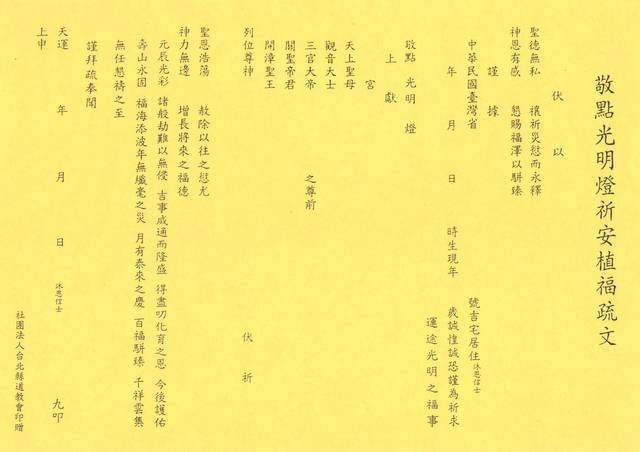 敬點光明燈祈安植福疏文
伏以
聖德無私 禳祈災愆而永釋
神恩有感 懇賜福澤以駢臻
謹據
中華民國臺灣省 號吉宅居住沐恩信士
年 月 日 時生現年 歲誠惶誠恐謹為祈求
運途光明之福事
敬點 光明燈
上獻
宮
天上聖母
觀音大士
三官大帝 之尊前
關聖帝君
開漳聖王
列位尊神 伏祈
聖恩浩蕩 赦除以往之愆尤
神力無邊 增長將來之福德
元辰光彩 諸般劫難以無侵 吉事咸通而隆盛 得盡叨化育之恩 今後護佑
壽山永固 福海添波年無纖毫之災 月有泰來之慶 百福駢臻 千祥雲集
無任懇禱之至
謹拜疏奉聞
天運 年 月 日 沐恩信士 九叩
上申
社團法人台北縣道教會印贈